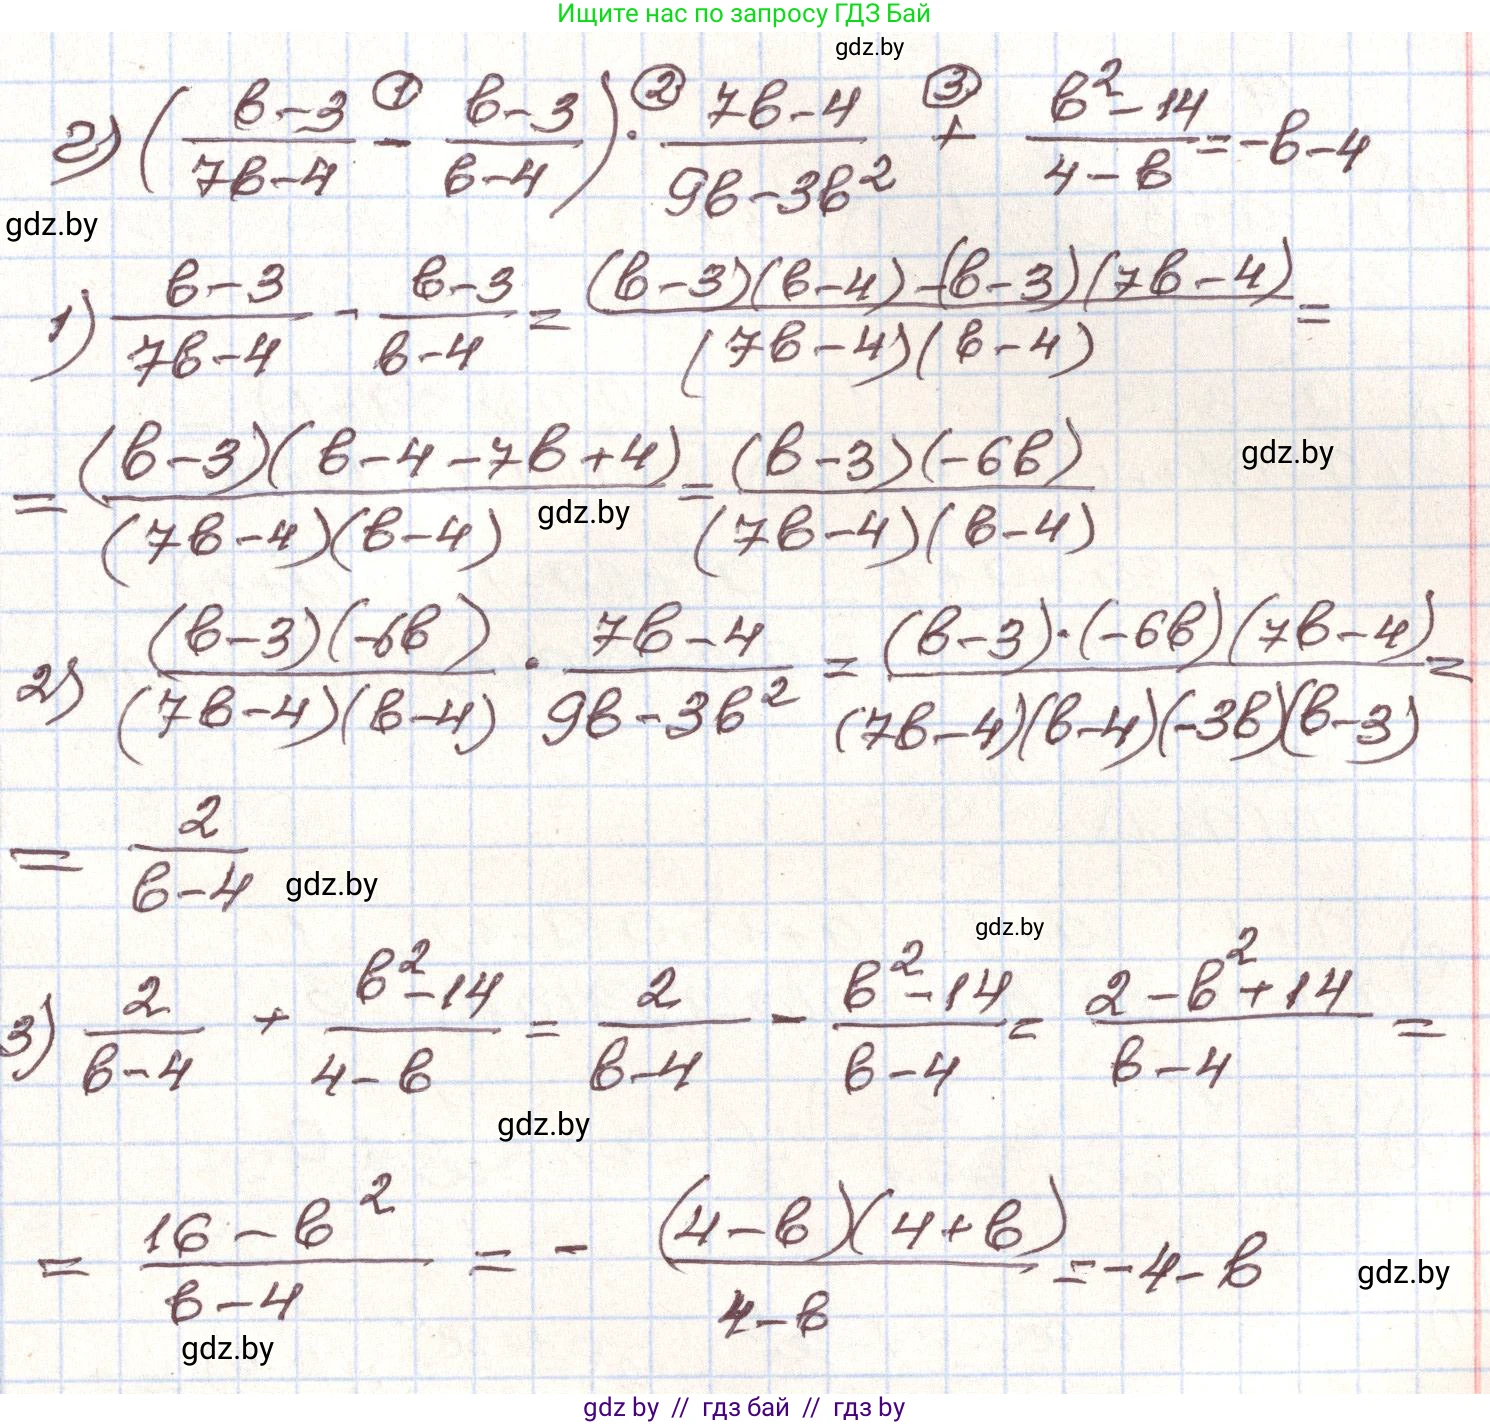 Ищите нас по запросу ГДЗ Бай
gdz.by
г) ( (в-3)/(7в-4) - (в-3)/(в-4) ) · (7в-4)/(9в-3в²) + (в²-14)/(4-в) = -в-4
① ② ③
gdz.by
1) (в-3)/(7в-4) - (в-3)/(в-4) = ((в-3)(в-4)-(в-3)(7в-4))/((7в-4)(в-4)) =
= ((в-3)(в-4-7в+4))/((7в-4)(в-4)) = ((в-3)(-6в))/((7в-4)(в-4))
gdz.by
gdz.by
2) ((в-3)(-6в))/((7в-4)(в-4)) · (7в-4)/(9в-3в²) = ((в-3)·(-6в)(7в-4))/((7в-4)(в-4)(-3в)(в-3)) =
= 2/(в-4)
gdz.by
gdz.by
3) 2/(в-4) + (в²-14)/(4-в) = 2/(в-4) - (в²-14)/(в-4) = (2-в²+14)/(в-4) =
gdz.by
= (16-в²)/(в-4) = - ((4-в)(4+в))/(4-в) = -4-в
gdz.by
gdz.by
gdz by // гдз бай // гдз by